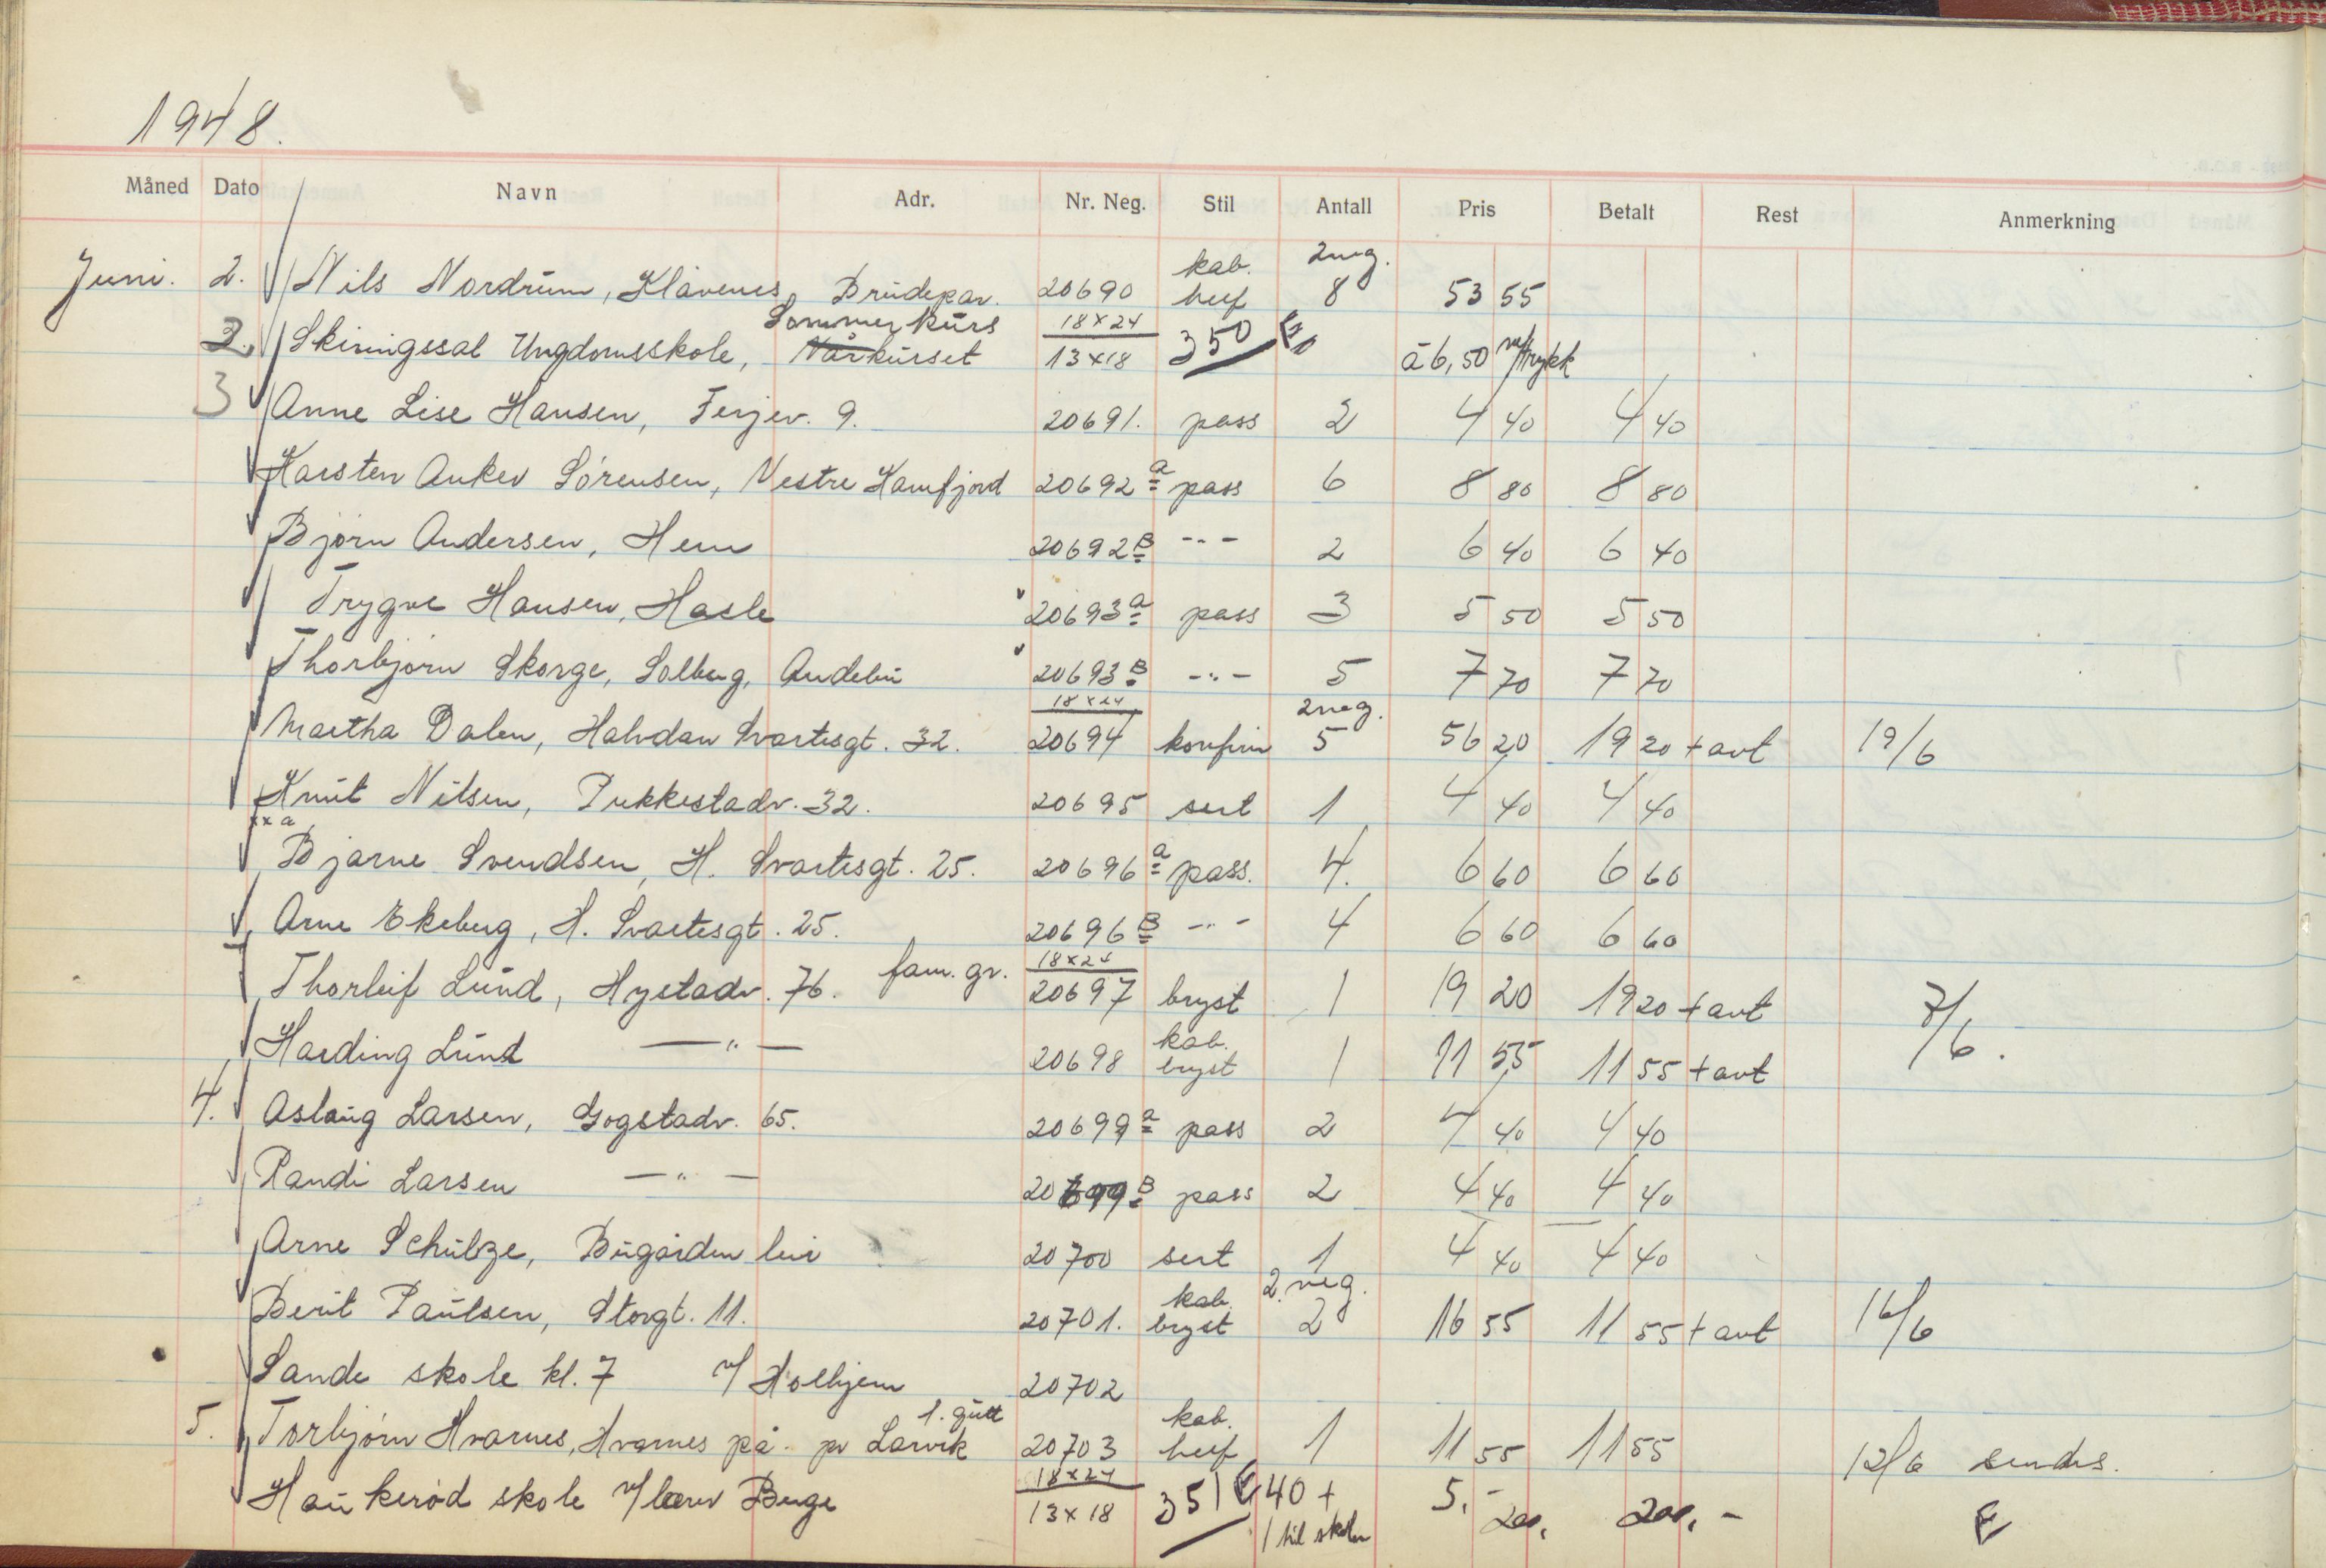 1948.
Måned Dato Navn Adr. Nr. Neg. Stil Antall Pris Betalt Rest Anmerkning
Juni. 2. Nils Nordrum, Klåvenes Brudepar. 20690 kab. 2 neg. 8 53 55
Sommerkurs
2. Skiringssal Ungdomsskole, Vårkurset 18x24 13x18 350 á 6,50 m/trykk
3 Anne Lise Hansen, Ferjev. 9. 20691. pass 2 4 40 4 40
Karsten Anker Sörensen, Vestre Kamfjord 20692 a pass 6 8 80 8 80
Bjørn Andersen, Hem 20692 B -"- 2 6 40 6 40
Trygve Hansen, Hasle 20693 a pass 3 5 50 5 50
Thorbjørn Skorge, Solberg, Andebu 20693 B -"- 5 7 70 7 70
Martha Dalen, Halvdan Svartesgt. 32. 18x24 20694 konfirm 2 neg. 5 56 20 19 20 + avt 19/6
Knut Nilsen, Pukkestadv. 32. 20695 sert 1 4 40 4 40
xx a
Bjarne Svendsen, H. Svartesgt. 25. 20696 a pass. 4. 6 60 6 60
Arne Ekeberg, H. Svartesgt. 25. 20696 B -"- 4 6 60 6 60
Thorleif Lund, Hystadv. 76. fam. gr. 18x24 20697 bryst 1 19 20 19 20 + avt 7/6.
Harding Lund -"- 20698 kab. bryst 1 11 55 11 55 + avt
4. Aslaug Larsen, Gogstadv. 65. 20699 a pass 2 4 40 4 40
Randi Larsen -"- 20699 B pass 2 4 40 4 40
Arne Schulze, Bugården 20700 sert 1 4 40 4 40
Berit Paulsen, Storgt. 11. 20701. kab. bryst 2. neg. 2 16 55 11 55 + avt 16/6
Sande skole kl. 7 v/ Holhjem 20702
5. Torbjørn Hvarnes, Hvarnes på. pr Larvik 1. gutt 20703 kab. 1 11 55 11 55 12/6 sendes.
Haukerød skole v/ lærer Berge 18x24 13x18 351 40 + 1 til skolen 5,- 200, 200,-